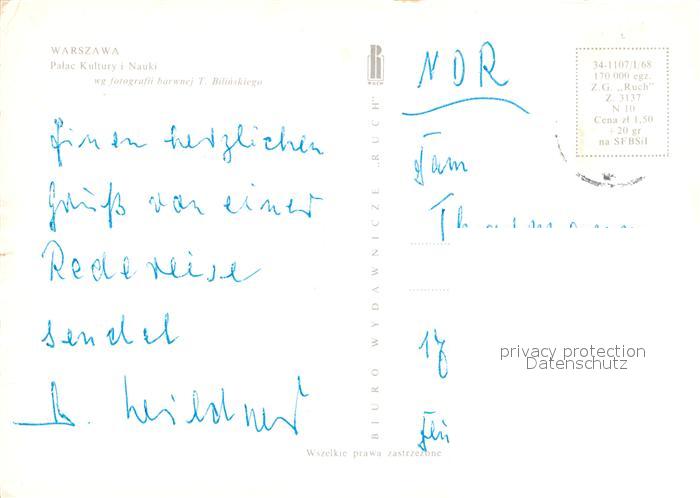 WARSZAWA
Pałac Kultury i Nauki
wg fotografii barwnej T. Bilińskiego
Einen herzlichen
Gruß von einer
Redereise
sendet
BIURO WYDAWNICZE „RUCH”
RUCH
NDR
Fam
34-1107/I/68
170 000 egz.
Z.G. „Ruch”
Z. 3137
N 10
Cena zł 1,50
+20 gr
na SFBSiI
17
privacy protection
Datenschutz
Wszelkie prawa zastrzeżone